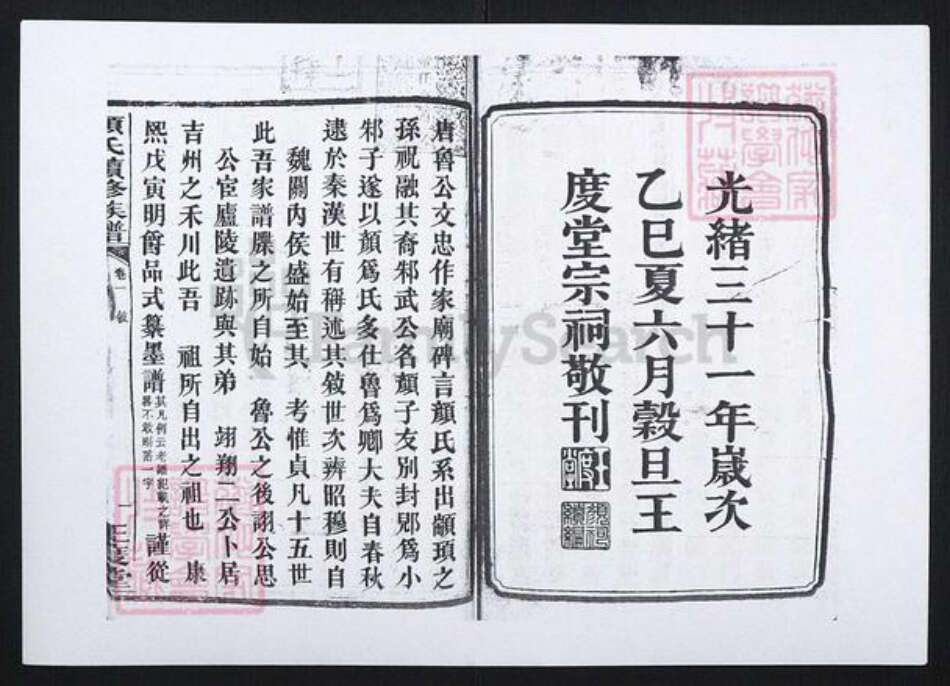 光緒三十一年歲次
乙巳夏六月穀旦王
度堂宗祠敬刊
唐魯公文忠作家廟碑言顏氏系出顓頊之
孫祝融其裔邾武公名顏子友別封郳爲小
邾子遂以顏爲氏多仕魯爲卿大夫自春秋
逮於秦漢世有稱述其敍世次辨昭穆則自
魏關內侯盛始至其 考惟貞凡十五世
此吾家譜牒之所自始 魯公之後詡公思
公宦廬陵遺跡與其弟 翊翔二公卜居
吉州之禾川此吾 祖所自出之祖也 康
熙戊寅明爵品式纂墨譜 謹從
顏氏續修族譜 卷一
FamilySearch